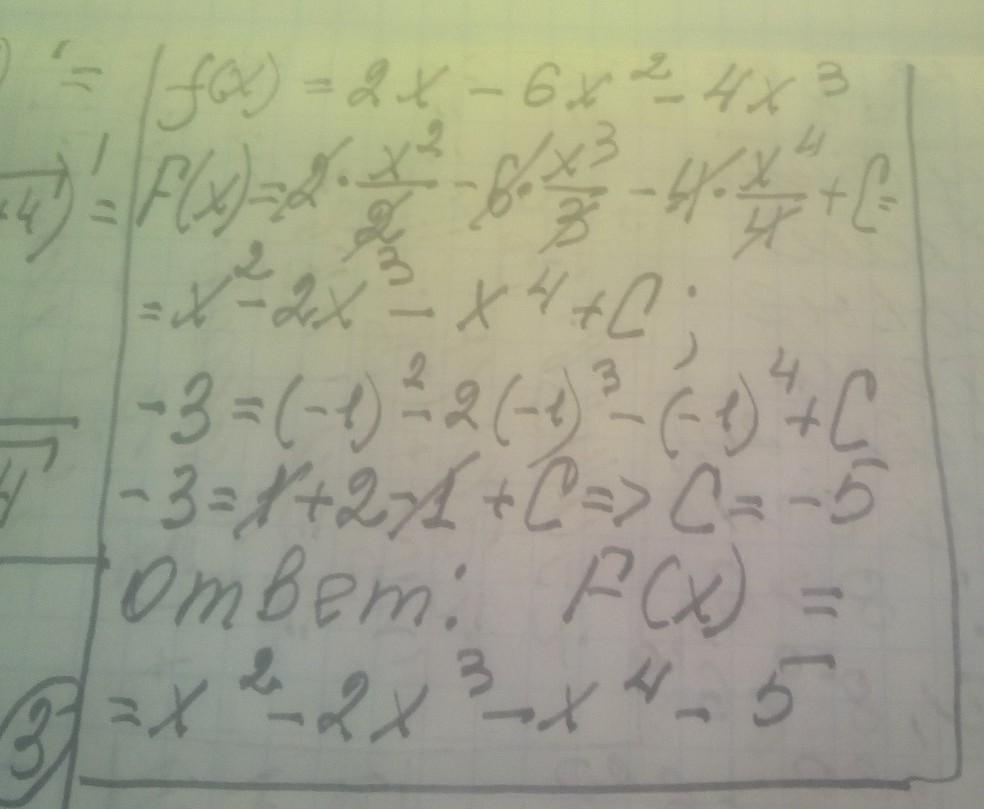 ' = f(x) = 2x - 6x² - 4x³
+4)' = F(x) = 2 · x²/2 - 6 · x³/3 - 4 · x⁴/4 + C =
= x² - 2x³ - x⁴ + C ;
-3 = (-1)² - 2(-1)³ - (-1)⁴ + C
-3 = 1 + 2 - 1 + C => C = -5
Ответ: F(x) =
= x² - 2x³ - x⁴ - 5
3